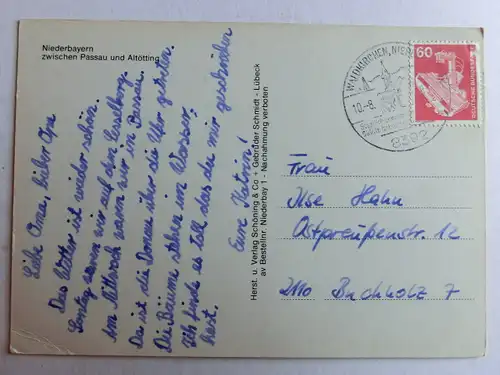 Niederbayern
zwischen Passau und Altötting
Liebe Oma, lieber Opa
Das Wetter ist wieder schön.
Sontag waren wir auf dem
Am Mittwoch waren wir in Passau.
Da ist die Donau über die Ufer getreten.
Die Bäume stehen im Wasser.
Ich finde es toll das du mir geschrieben
hast.
Eure Katrin!
Herst. u. Verlag Schöning & Co + Gebrüder Schmidt - Lübeck
av Bestellnr. Niederbay 1 - Nachahmung verboten
WALDKIRCHEN, NIEDERBAY
10.-8.
8392
60
DEUTSCHE BUNDESPOST
Frau
Ilse Hahn
Ostpreußenstr. 12
2110 Buchholz 7